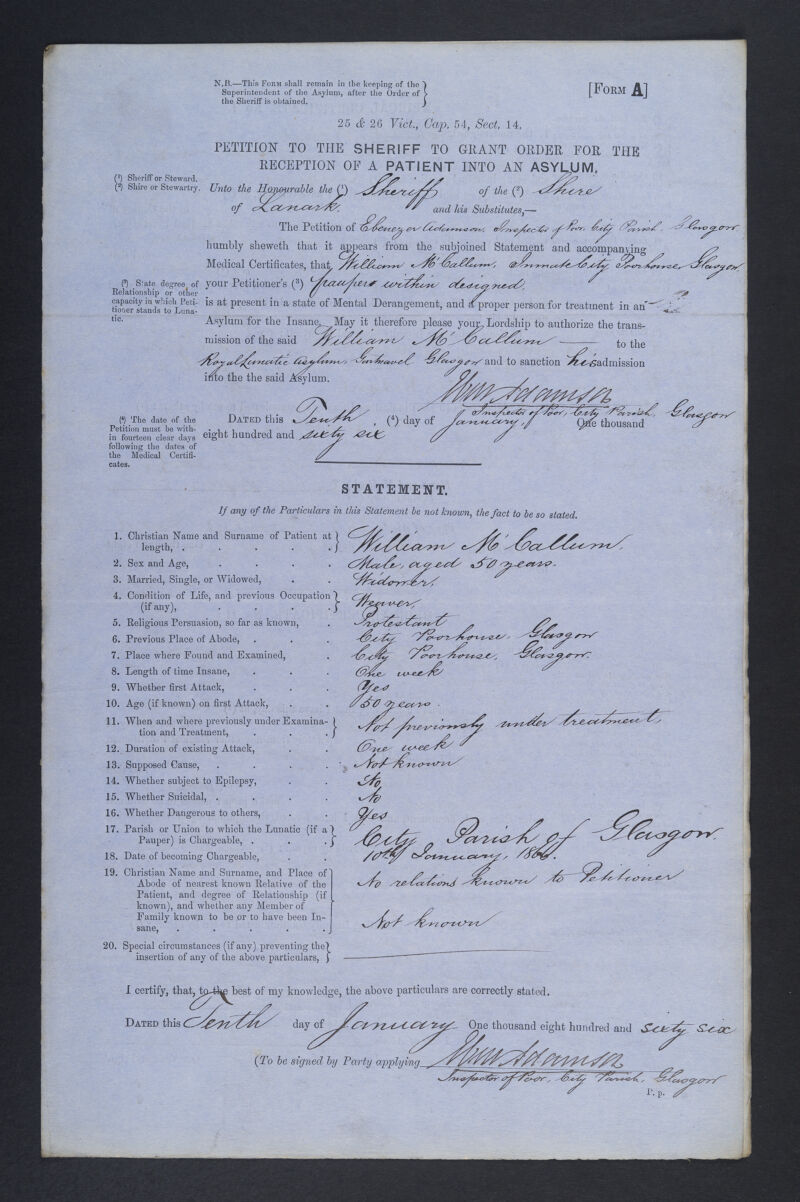 N.B.—This Form shall remain in the keeping of the
Superintendent of the Asylum, after the Order of
the Sheriff is obtained.
[Form A]
25 & 26 Vict., Cap. 54, Sect. 14.
PETITION TO THE SHERIFF TO GRANT ORDER FOR THE
RECEPTION OF A PATIENT INTO AN ASYLUM.
(1) Sheriff or Steward.
(2) Shire or Stewartry.
Unto the Honourable the (1) Sheriff of the (2) Shire
of Lanark. and his Substitutes,—
The Petition of Ebenezer Adamson, Inspector of Poor, City Parish Glasgow
humbly sheweth that it appears from the subjoined Statement and accompanying
Medical Certificates, that William McCallum, Inmate City Poorhouse Glasgow
(3) State degree of
Relationship or other
capacity in which Peti-
tioner stands to Luna-
tic.
your Petitioner's (3) pauper within designed.
is at present in a state of Mental Derangement, and a proper person for treatment in an
Asylum for the Insane. May it therefore please your Lordship to authorize the trans-
mission of the said William McCallum — to the
Royal Lunatic Asylum, Gartnavel Glasgow and to sanction his admission
into the the said Asylum.
Adamson
Inspector of Poor, City Parish, Glasgow
(4) The date of the
Petition must be with-
in fourteen clear days
following the dates of
the Medical Certifi-
cates.
Dated this Tenth (4) day of January, One thousand
eight hundred and sixty six
STATEMENT.
If any of the Particulars in this Statement be not known, the fact to be so stated.
1. Christian Name and Surname of Patient at
length, . . . . . William McCallum.
2. Sex and Age, . . . . Male, aged 50 years.
3. Married, Single, or Widowed, . . Widower.
4. Condition of Life, and previous Occupation
(if any), . . . . . Weaver.
5. Religious Persuasion, so far as known, . Protestant
6. Previous Place of Abode, . . . City Poorhouse, Glasgow
7. Place where Found and Examined, . City Poorhouse, Glasgow.
8. Length of time Insane, . . . One week
9. Whether first Attack, . . . Yes
10. Age (if known) on first Attack, . . 50 years.
11. When and where previously under Examina-
tion and Treatment, . . . Not previously under treatment,
12. Duration of existing Attack, . . One week
13. Supposed Cause, . . . . Not known
14. Whether subject to Epilepsy, . . No
15. Whether Suicidal, . . . . No
16. Whether Dangerous to others, . . Yes
17. Parish or Union to which the Lunatic (if a
Pauper) is Chargeable, . . . City Parish of Glasgow.
18. Date of becoming Chargeable, . . 10th January, 1866.
19. Christian Name and Surname, and Place of
Abode of nearest known Relative of the
Patient, and degree of Relationship (if
known), and whether any Member of
Family known to be or to have been In-
sane, . . . . .
No relations known to Petitioner
Not known
20. Special circumstances (if any) preventing the
insertion of any of the above particulars,
I certify, that, to the best of my knowledge, the above particulars are correctly stated.
Dated this Tenth day of January One thousand eight hundred and sixty six
(To be signed by Party applying Adamson
Inspector of Poor, City Parish, Glasgow
P. p.